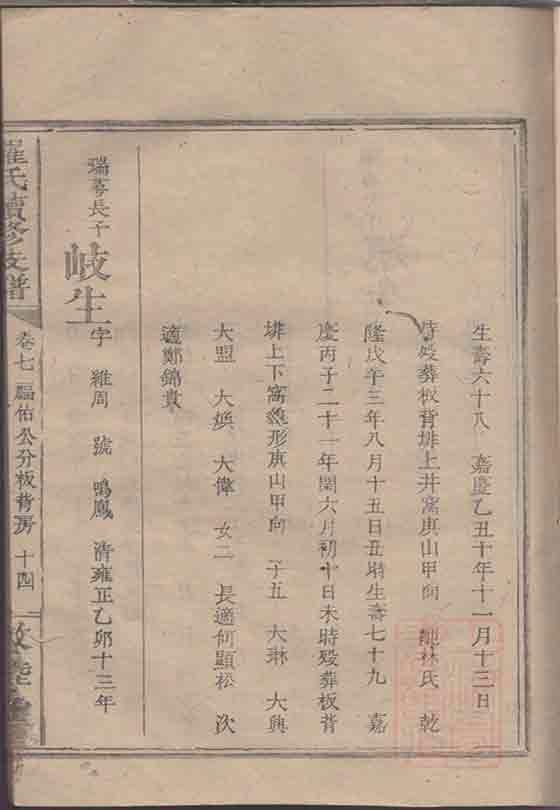 生壽六十八 嘉慶乙丑十年十一月十三日
時歿葬板背排上井窩庚山甲向 配林氏 乾
隆戊午三年八月十五日丑時生壽七十九 嘉
慶丙子二十一年閏六月初十日未時歿葬板背
排上下窩 形庚山甲向 子五 大琳 大興
大盟 大娛 大偉 女二 長適何顯松 次
適鄭錦貴
瑞 長子 岐生 字 維周 號 鳴鳳 清雍正乙卯十三年
羅氏續修支譜 卷七 福佑公分板背房 十四 敦睦堂